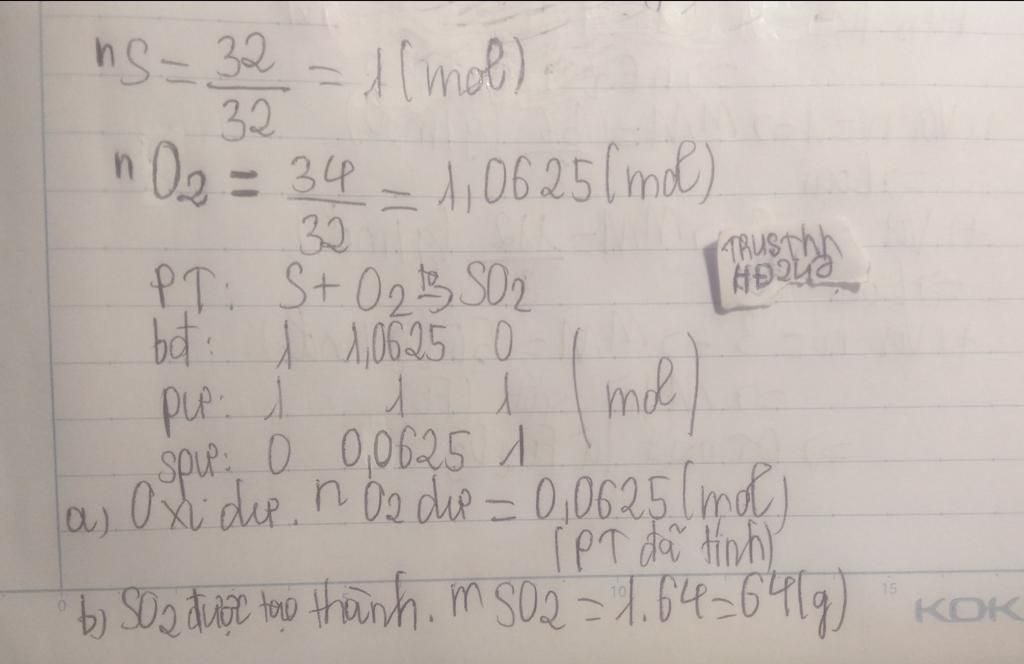 nS = 32/32 = 1 (mol)
nO2 = 34/32 = 1,0625 (mol)
TRUSTHH
HĐ24Đ
PT: S + O2 t°→ SO2
bđ: 1 1,0625 0
pư: 1 1 1 (mol)
spư: 0 0,0625 1
a) Oxi dư. nO2 dư = 0,0625 (mol)
(PT đã tính)
b) SO2 được tạo thành. mSO2 = 1.64 = 64 (g)
0 10 15
KOK